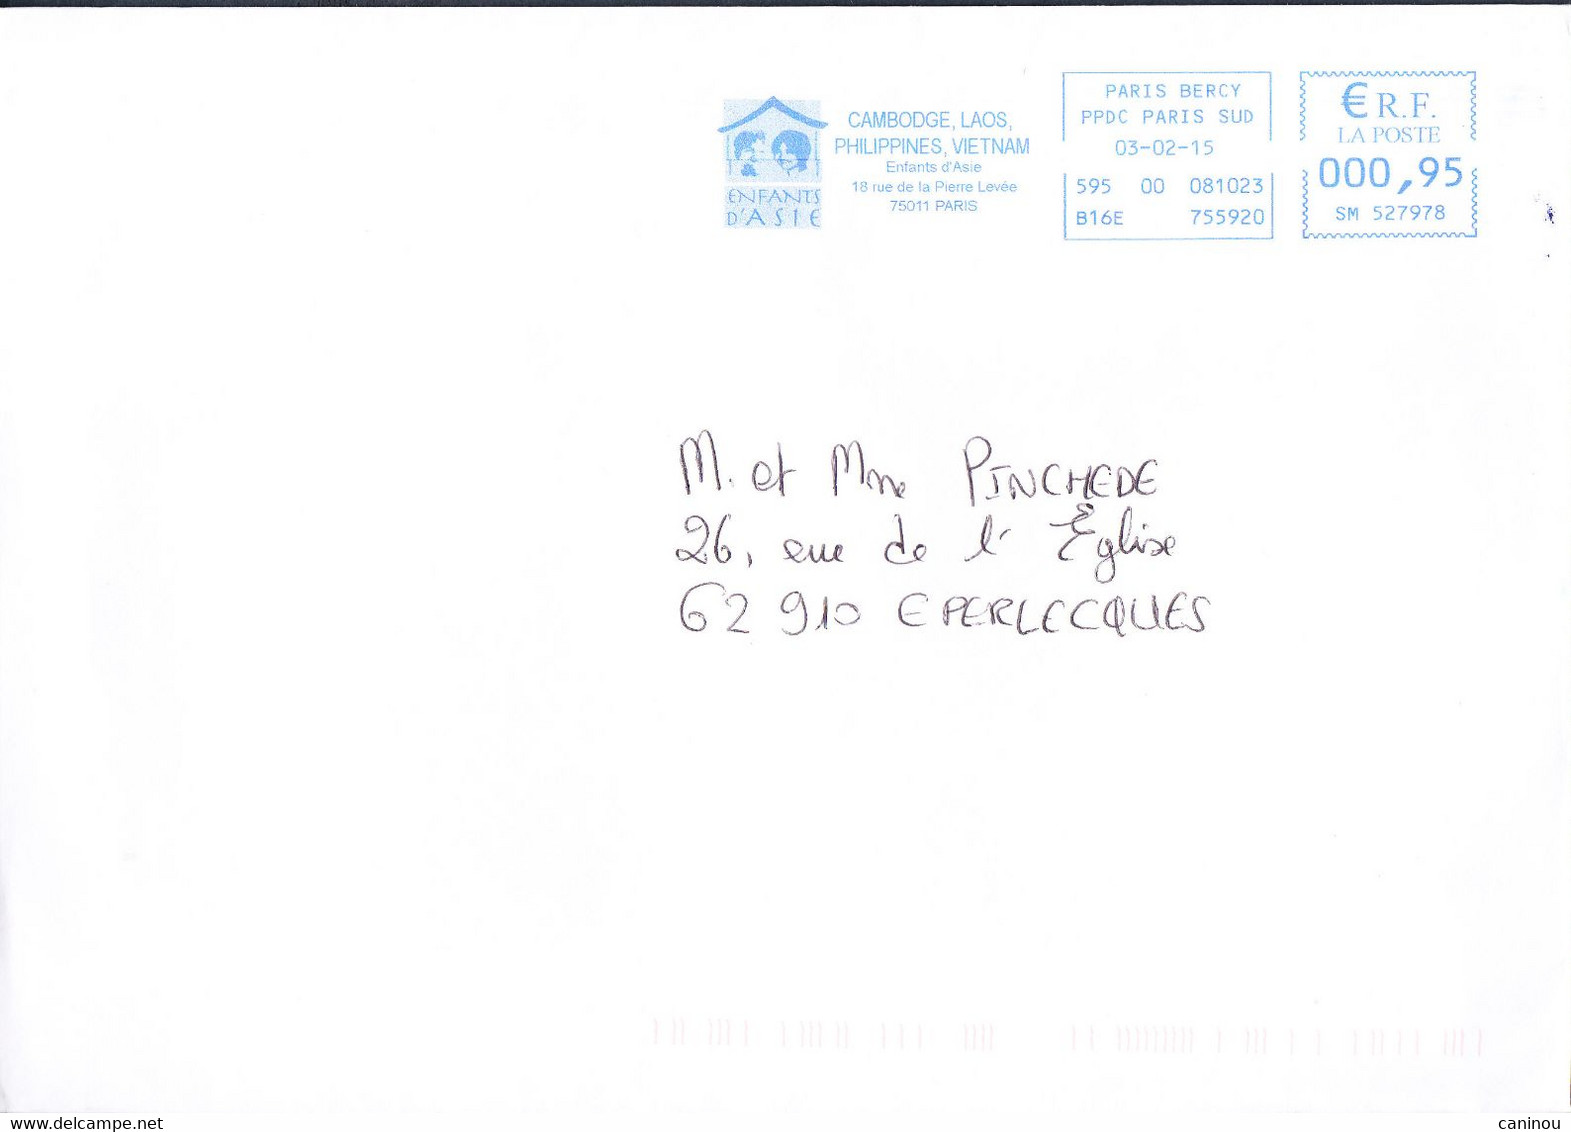 ENFANTS
D'ASIE
CAMBODGE, LAOS,
PHILIPPINES, VIETNAM
Enfants d'Asie
18 rue de la Pierre Levée
75011 PARIS
PARIS BERCY
PPDC PARIS SUD
03-02-15
595 00 081023
B16E 755920
€ R.F.
LA POSTE
000,95
SM 527978
M. et Mme PINCHEDE
26, rue de l'Église
62 910 EPERLECQUES
www.delcampe.net
caninou